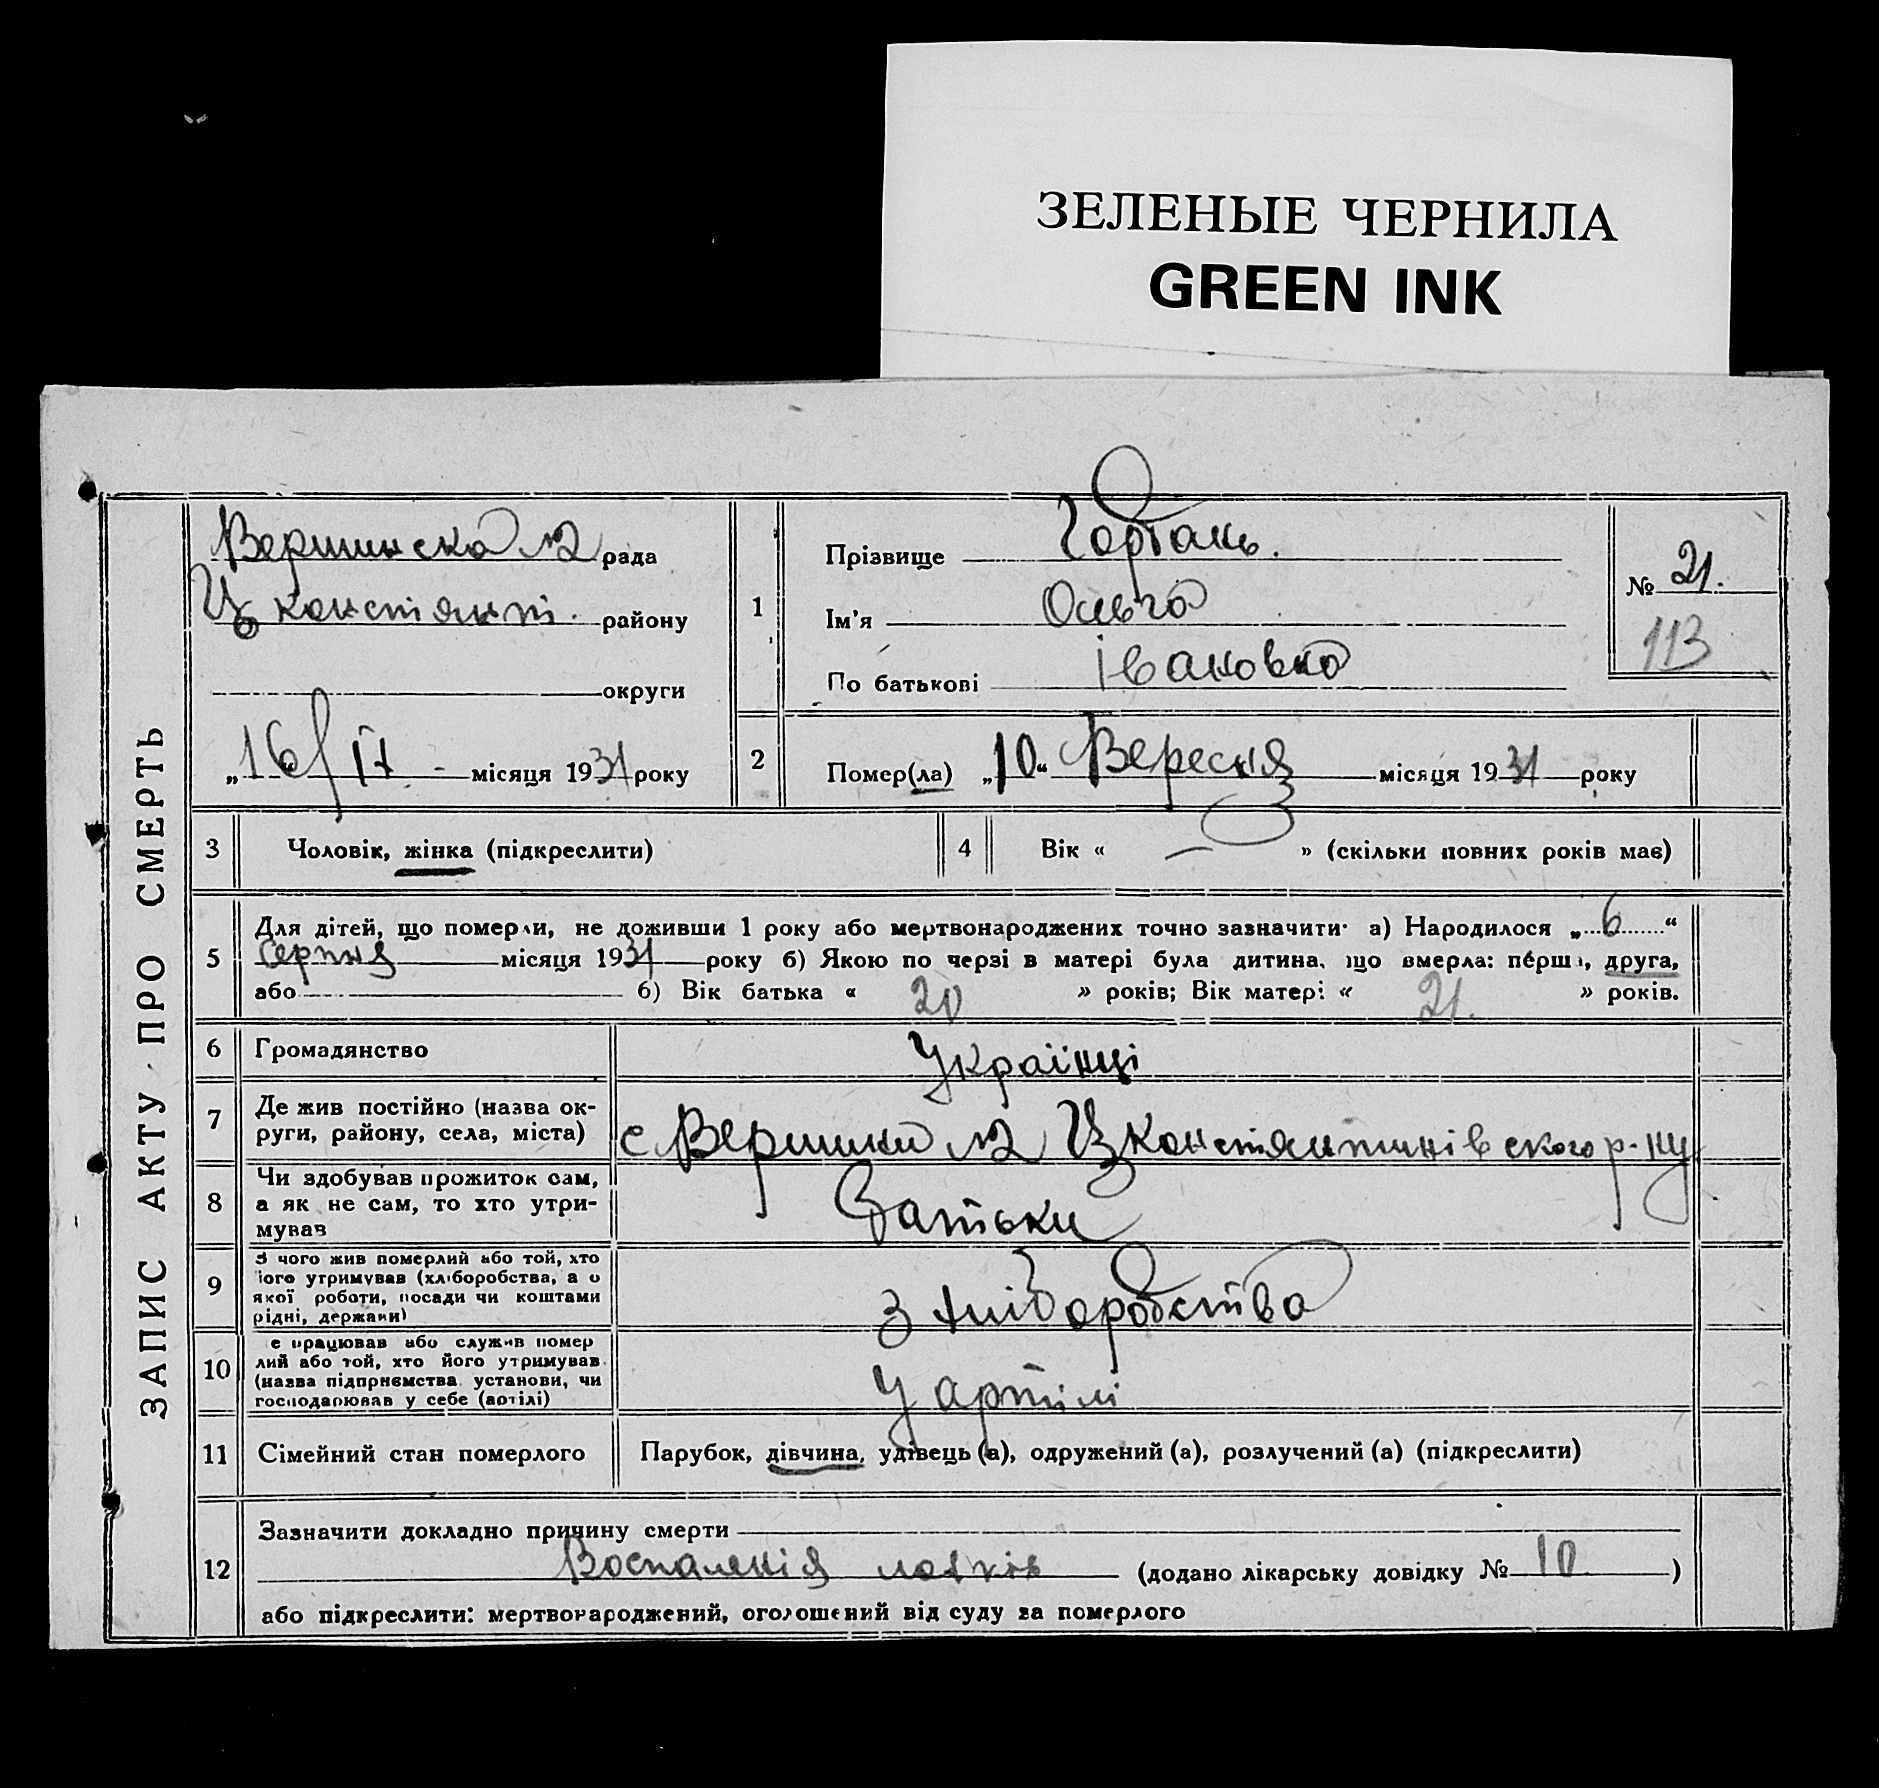 ЗЕЛЕНЫЕ ЧЕРНИЛА
GREEN INK
ЗАПИС АКТУ ПРО СМЕРТЬ
Вершинська №2 рада
Ц констянт. району
округи
„16“ IX місяця 1931 року
1
Прізвище Горбань.
Ім'я Ольга
По батькові Івановна
№ 21.
113
2
Помер(ла) „10“ Вересня місяця 1931 року
3 Чоловік, жінка (підкреслити)
4 Вік « — » (скільки повних років має)
5 Для дітей, що померли, не доживши 1 року або мертвонароджених точно зазначити: а) Народилося „6“
серпня місяця 1931 року б) Якою по черзі в матері була дитина, що вмерла: перша, друга,
або б) Вік батька « 20 » років; Вік матері « 21. » років.
6 Громадянство Українці
7 Де жив постійно (назва ок-
руги, району, села, міста) с Вершини №2 Цконстянтинівського р-ну
8 Чи здобував прожиток сам,
а як не сам, то хто утри-
мував Батьки
9 З чого жив померлий або той, хто
його утримував (хліборобства, а о
якої роботи, посади чи коштами
рідні, держави) З хліборобства
10 е працював або служив помер
лий або той, хто його утримував
(назва підприємства установи, чи
господарював у себе (артілі) У артілі
11 Сімейний стан померлого Парубок, дівчина, удівець (а), одружений (а), розлучений (а) (підкреслити)
12 Зазначити докладно причину смерти
Воспаленія легків (додано лікарську довідку № 10 )
або підкреслити: мертвонароджений, оголошений від суду за померлого